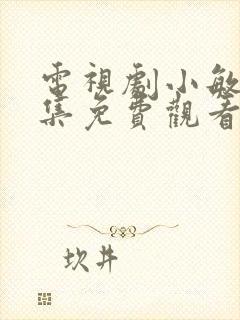 電視劇小敏
集免費觀看
坎井